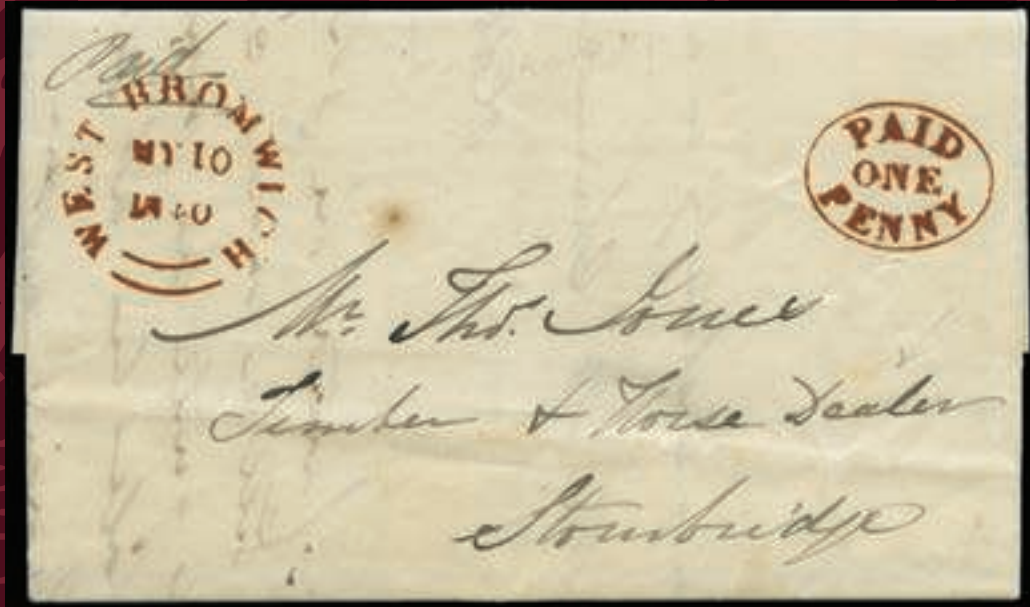 Paid
WEST BROMWICH
PAID
ONE
PENNY
Mr. Thos. Jones
Timber & Horse Dealer
Stourbridge